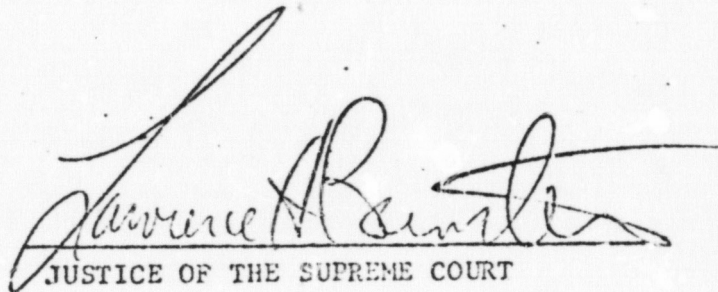 Lawrence H Bernstein
JUSTICE OF THE SUPREME COURT